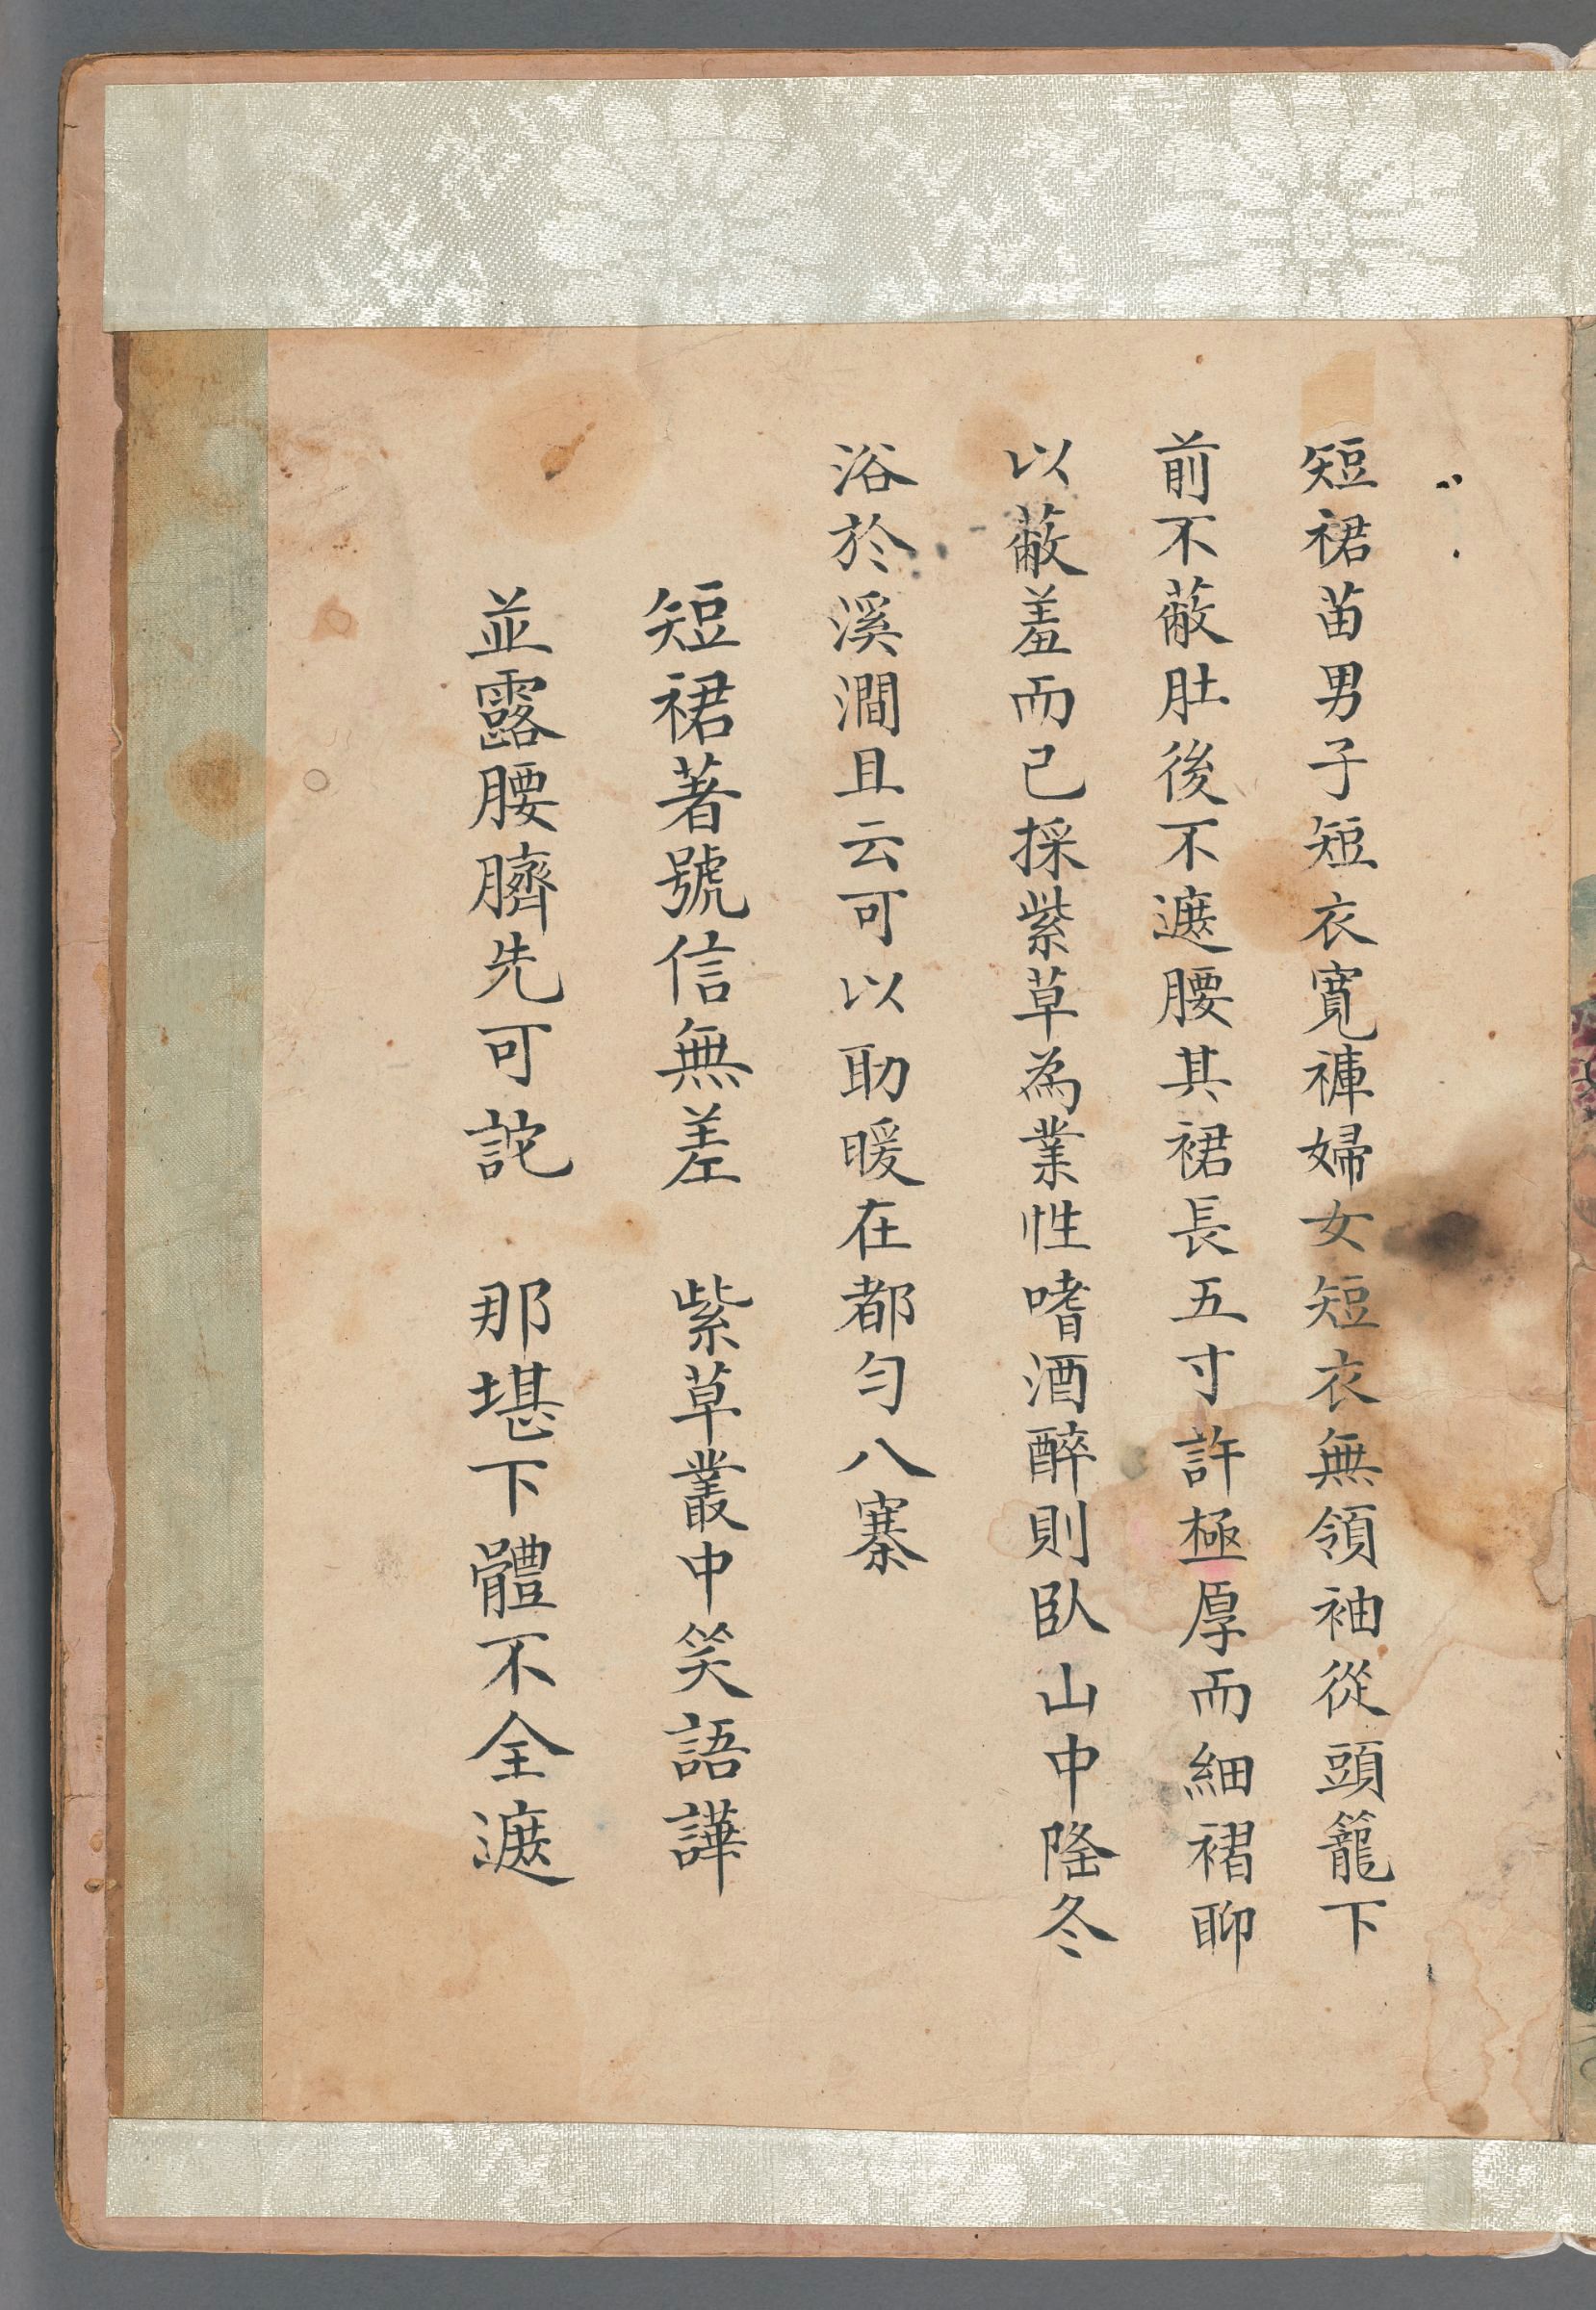 短裙苗男子短衣寬褲婦女短衣無領袖從頭籠下
前不蔽肚後不遮腰其裙長五寸許極厚而細褶聊
以蔽羞而已採紫草為業性嗜酒醉則臥山中隆冬
浴於溪澗且云可以助暖在都勻八寨
短裙著號信無差　紫草叢中笑語譁
並露腰臍先可詫　那堪下體不全遮